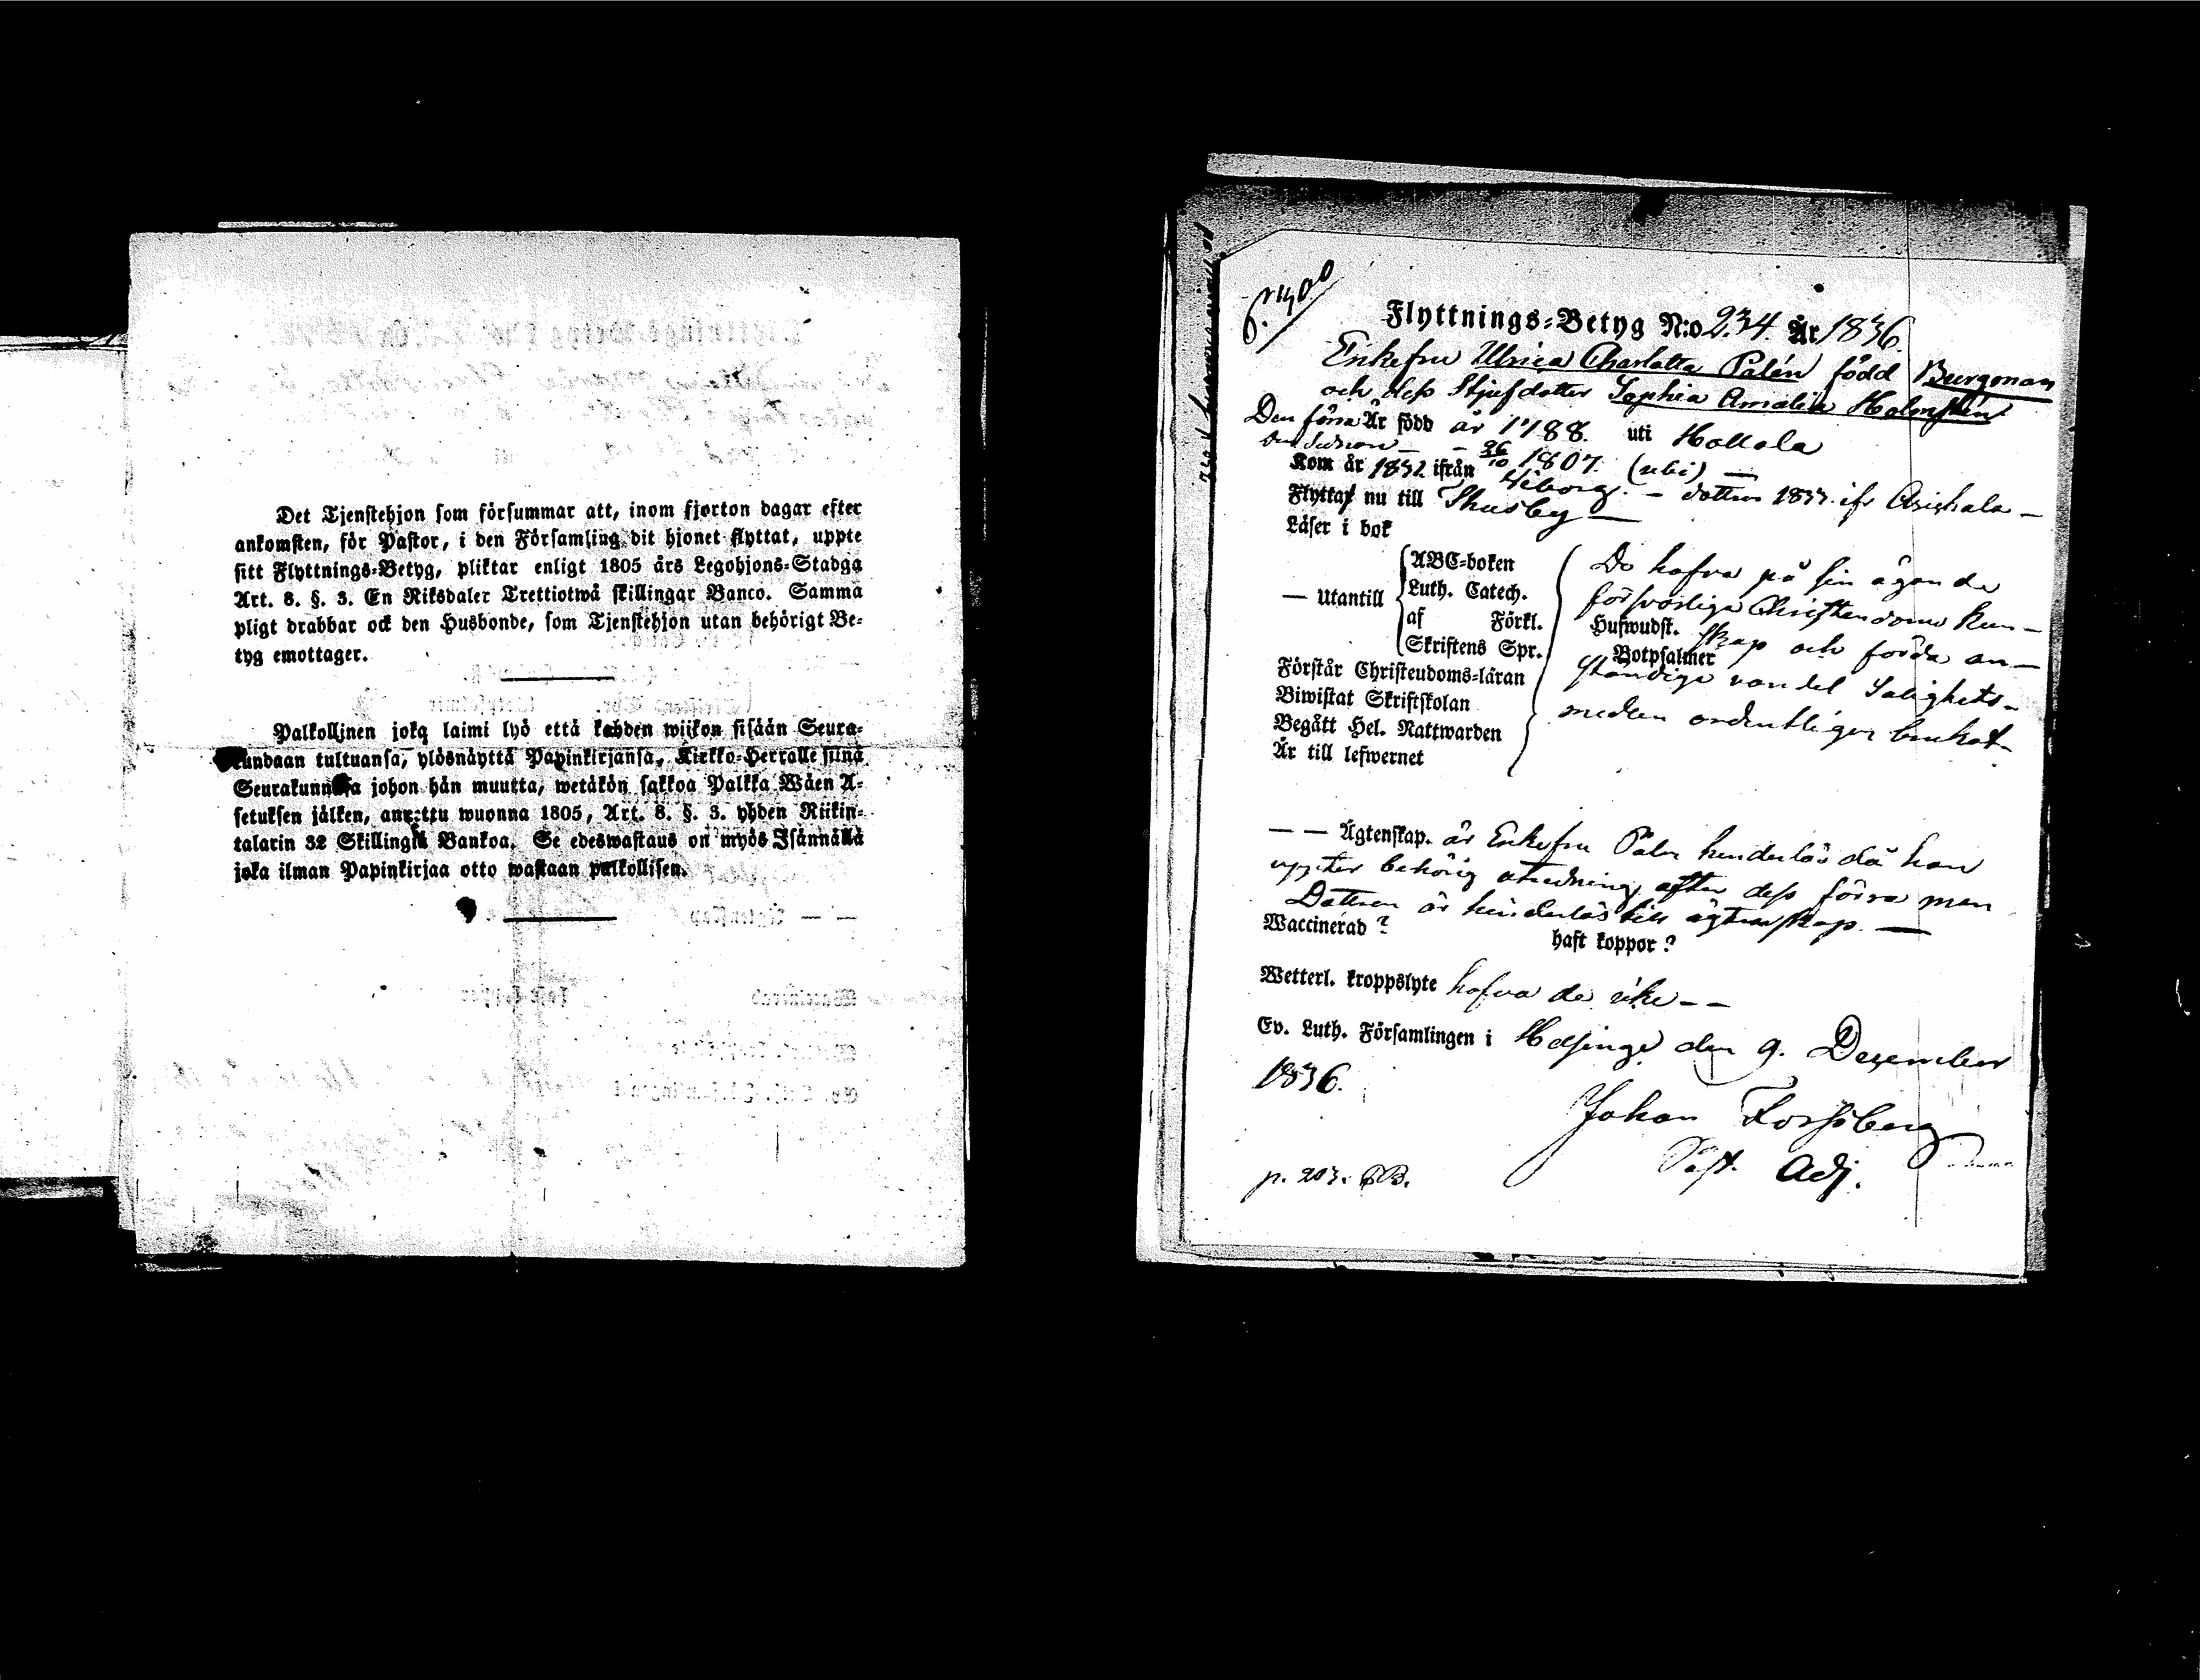 Det Tjenstehjon som försummar att, inom fjorton dagar efter
ankomsten, för Pastor, i den Församling dit hjonet flyttat, uppte
sitt Flyttnings-Betyg, pliktar enligt 1805 års Legohjons-Stadga
Art. 8. §. 3. En Riksdaler Trettiotwå skillingar Banco. Samma
pligt drabbar ock den Husbonde, som Tjenstehjon utan behörigt Be-
tyg emottager.
Palkollinen joka laimi lyö että kahden wiikon sisään Seura-
kundaan tultuansa, ylösnäyttä Papinkirjansa, Kirkko-Herralle siinä
Seurakunnasa johon hän muutta, wetäkön sakkoa Palkka Wäen A-
setuksen jälken, annettu wuonna 1805, Art. 8. §. 3. yhden Riikin-
talarin 32 Skillingiä Bankoa. Se edeswastaus on myös Isännällä
joka ilman Papinkirjaa otto wastaan palkollisen.
Flyttnings-Betyg N:o 234. År 1836.
Enkefru Ulrica Charlotta Palén född Bergman
och dess Stjufdotter Sophia Amalia Holmstén
Den förra Är född år 1788. uti Hollola
den sednare — — 26/10 1807. (ubi) —
Kom år 1832 ifrån Wiborg. — dottren 1833. ifr Artsjhala —
Flyttar nu till Thusby —
Läser i bok
— Utantill
ABC-boken
Luth. Catech.
af Förkl.
Skriftens Spr.
Hufwudst.
Botpsalmer
Förstår Christendoms-läran
Biwistat Skriftskolan
Begått Hel. Nattwarden
Är till lefwernet
De hafva på sin ägande
försvarliga Christendoms kun-
skap och förda an-
ständige vandel Salighets-
medlen ordentligen brukat
— — Ägtenskap. är Enkefru Palén hinderlös då hon
uppter behörig utredning after dess förra man
Dottren är hinderlös till ägtenskap. —
Waccinerad? haft koppor?
Wetterl. kroppslyte hafva de icke — —
Ev. Luth. Församlingen i Helsinge den 9. December
1836.
Johan Forssberg
Past. Adj.
p. 203. CB.